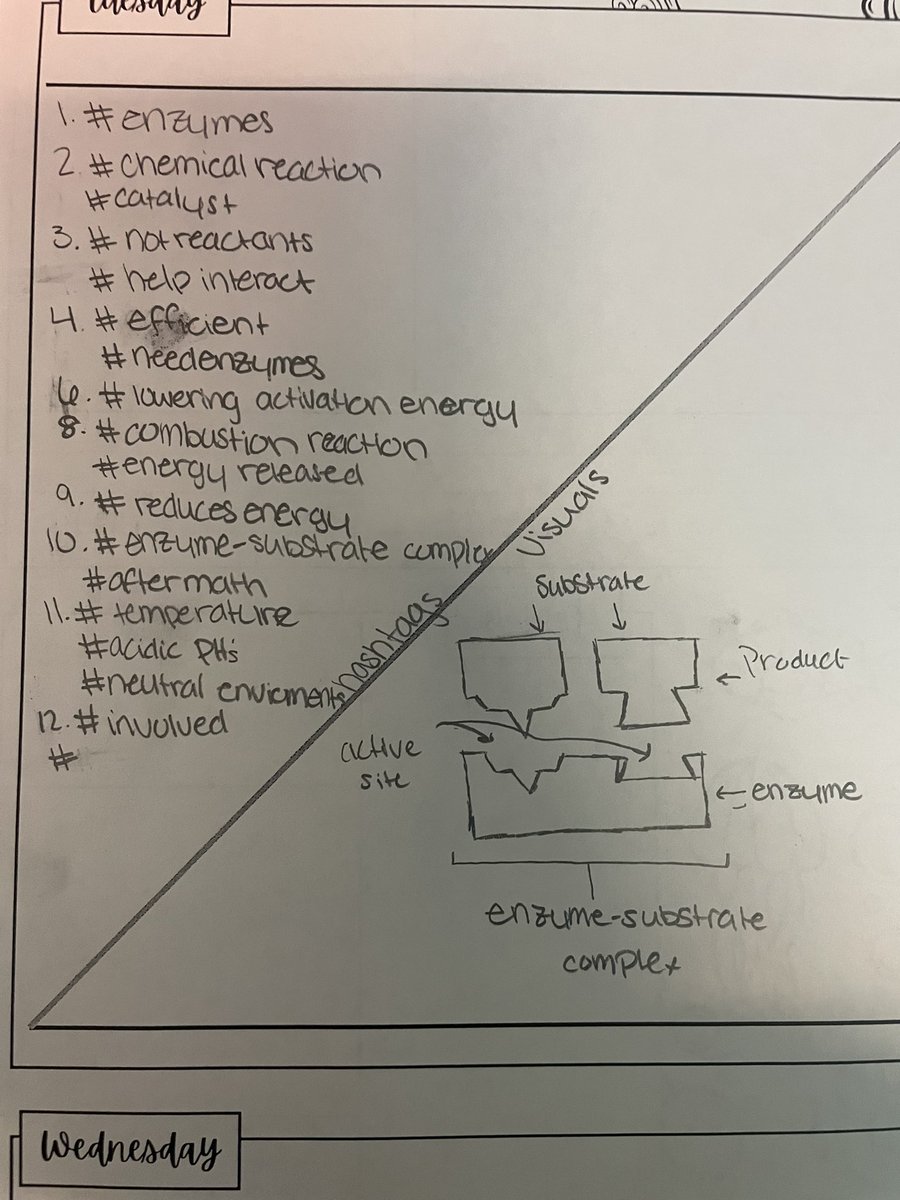 Tuesday
1. #enzymes
2. #chemical reaction
#catalyst
3. #not reactants
#help interact
4. #efficient
#needenzymes
6. #lowering activation energy
8. #combustion reaction
#energy released
9. #reduces energy
10. #enzyme-substrate complex
#aftermath
11. #temperature
#acidic PH's
#neutral envicments
12. #involved
#
hashtags
visuals
substrate
Product
active
site
enzume
enzume-substrate
complex
Wednesday